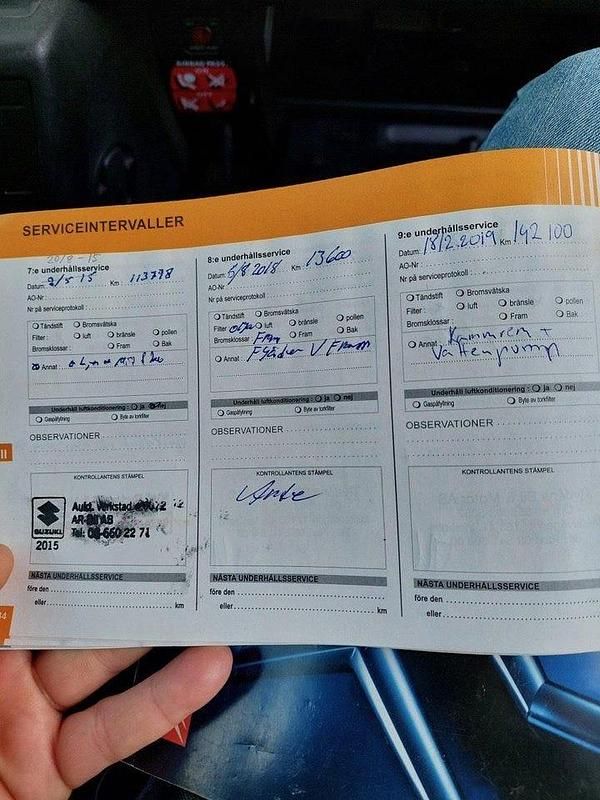 SERVICEINTERVALLER
20/8-15
7:e underhållsservice
Datum: 2/5 15 Km: 113778
AO-Nr
Nr på serviceprotokoll
Tändstift Bromsvätska
Filter: luft bränsle pollen
Bromsklossar: Fram Bak
Annat:
Underhåll luftkonditionering: ja nej
Gaspåfyllning Byte av torkfilter
OBSERVATIONER
KONTROLLANTENS STÄMPEL
SUZUKI
2015
Aukt. Verkstad
AR-Bil AB
Tel: 08-660 22 71
NÄSTA UNDERHÅLLSSERVICE
före den
eller km
8:e underhållsservice
Datum: 5/8 2018 Km: 13600
AO-Nr
Nr på serviceprotokoll
Tändstift Bromsvätska
Filter: luft bränsle pollen
Bromsklossar Fram Bak
Annat: Fjäder V Fram
Underhåll luftkonditionering: ja nej
Gaspåfyllning Byte av torkfilter
OBSERVATIONER
KONTROLLANTENS STÄMPEL
NÄSTA UNDERHÅLLSSERVICE
före den
eller km
9:e underhållsservice
Datum: 18/2.2019 Km 142 100
AO-Nr
Nr på serviceprotokoll
Tändstift Bromsvätska
Filter: luft bränsle pollen
Bromsklossar: Fram Bak
Annat: Kamrem +
Vattenpump
Underhåll luftkonditionering: ja nej
Gaspåfyllning Byte av torkfilter
OBSERVATIONER
KONTROLLANTENS STÄMPEL
NÄSTA UNDERHÅLLSSERVICE
före den
eller km